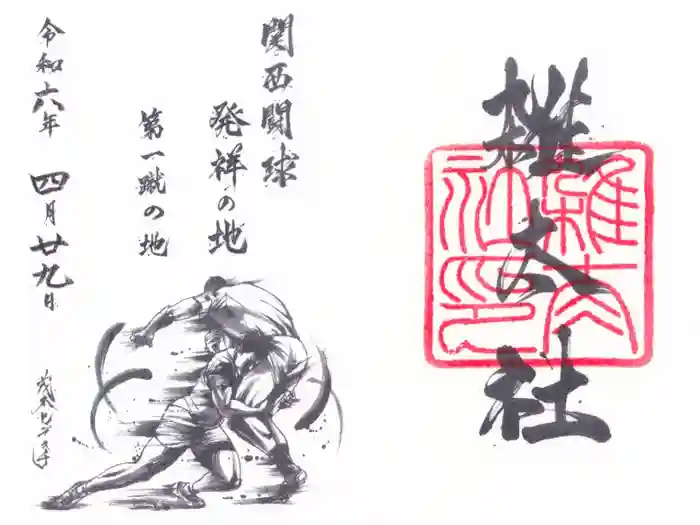 雑太社
雑太社印
関西闘球
発祥の地
第一蹴の地
令和六年 四月廿九日